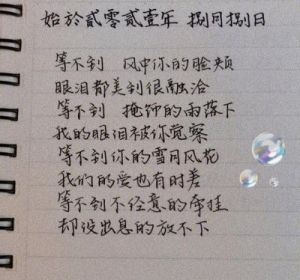 始於貳零贰壹年 捌月捌日
等不到 风中你的脸颊
眼泪都美到很融洽
等不到 掩饰的雨落下
我的眼泪被你觉察
等不到你的雪月风花
我们的爱也有时差
等不到不经意的牵挂
却没出息的放不下